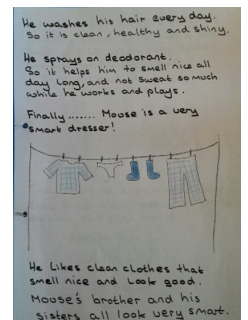 He washes his hair every day.
So it is clean, healthy and shiny.
He sprays on deodorant.
So it helps him to smell nice all
day long, and not sweat so much
while he works and plays.
Finally....... Mouse is a very
smart dresser!
He Likes clean clothes that
smell nice and look good.
Mouse's brother and his
sisters all look very smart.